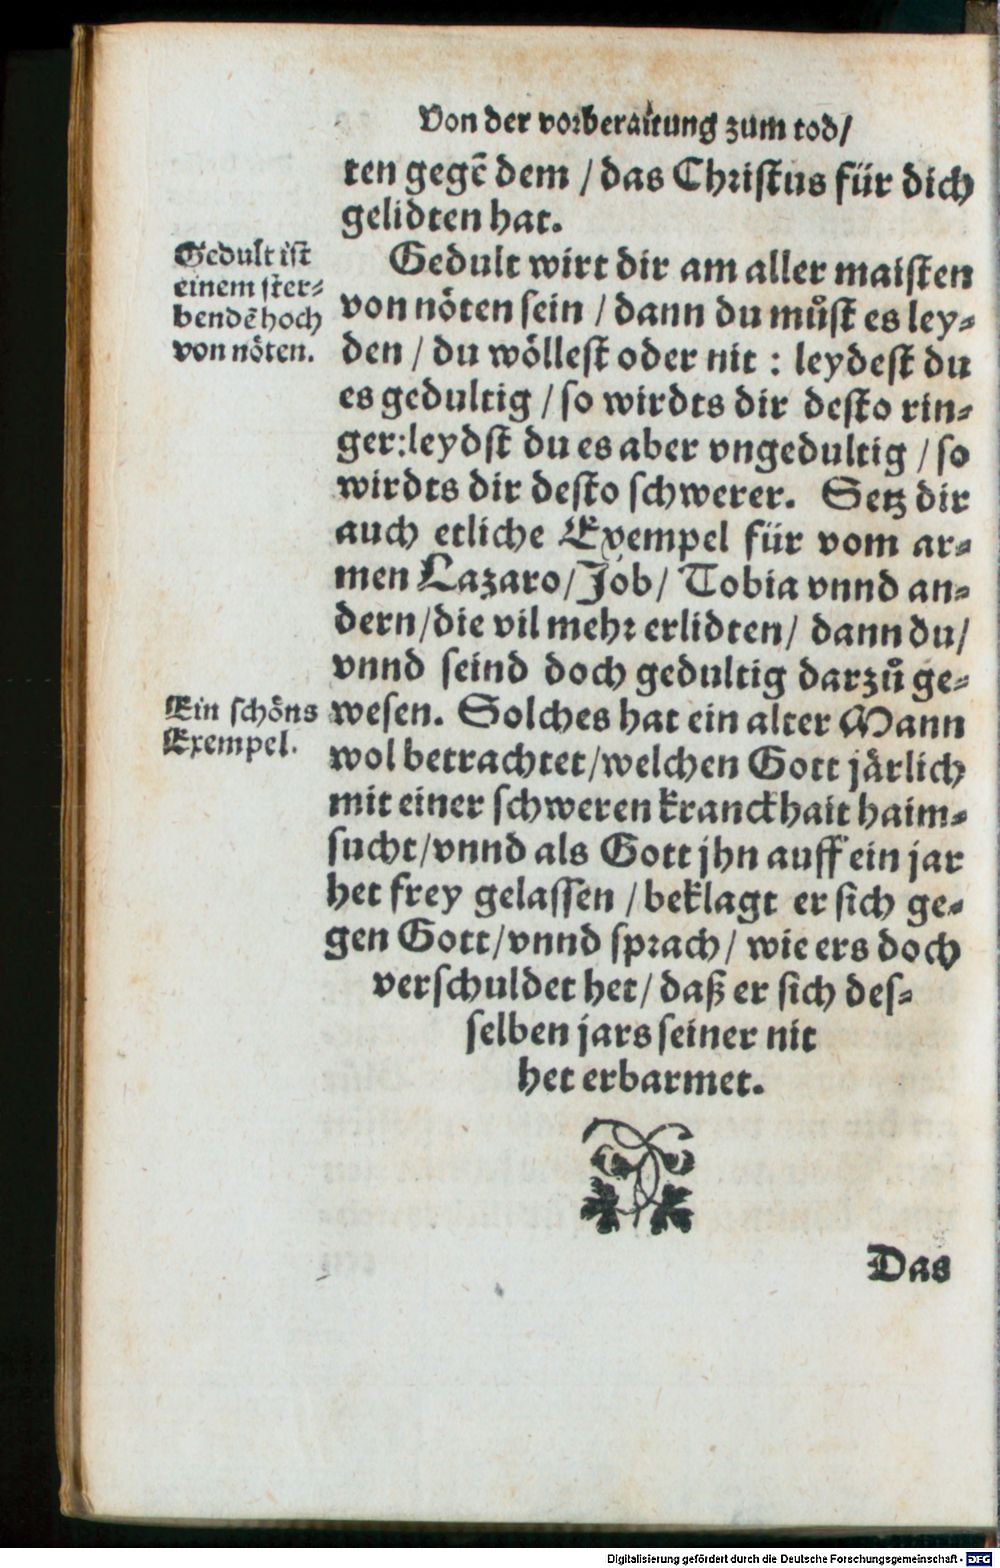 Von der vorberaitung zum tod/
ten gegē dem / das Christus für dich
gelidten hat.
Gedult ist
einem ster⸗
bendē hoch
von nöten.
Gedult wirt dir am aller maisten
von nöten sein / dann du můst es ley⸗
den / du wöllest oder nit : leydest du
es gedultig / so wirdts dir desto rin⸗
ger:leydst du es aber vngedultig / so
wirdts dir desto schwerer. Setz dir
auch etliche Exempel für vom ar⸗
men Lazaro/ Job/ Tobia vnnd an⸗
dern/die vil mehr erlidten/ dann du/
vnnd seind doch gedultig darzů ge⸗
Ein schöns
Exempel.
wesen. Solches hat ein alter Mann
wol betrachtet/welchen Gott järlich
mit einer schweren kranckhait haim⸗
sucht/vnnd als Gott jhn auff ein jar
het frey gelassen / beklagt er sich ge⸗
gen Gott/vnnd sprach/ wie ers doch
verschuldet het/ daß er sich des⸗
selben jars seiner nit
het erbarmet.
Das
Digitalisierung gefördert durch die Deutsche Forschungsgemeinschaft - DFG